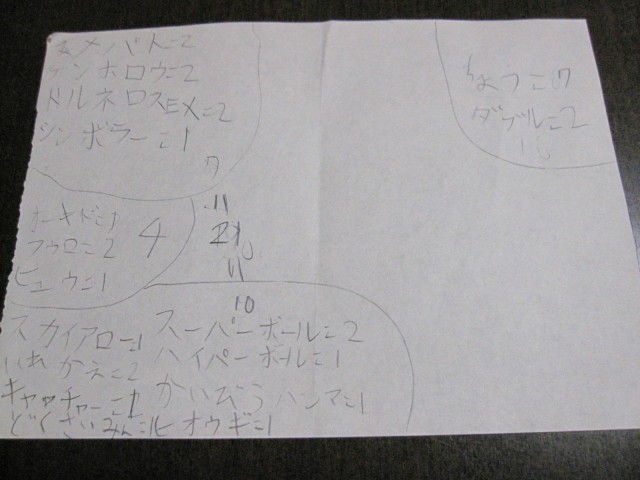 マメパト=2
ケンホロウ=2
トルネロスEX=2
シンボラー=1
7
オーキド=1
フウロ=2
ヒュウ=1
4
11
21
11
10
スカイアロー=1 スーパーボール=2
いれかえ=2 ハイパーボール=1
キャッチャー=1 かいぞうハンマ=1
どくさいみん=1 ヒオウギ=1
ダブル=2